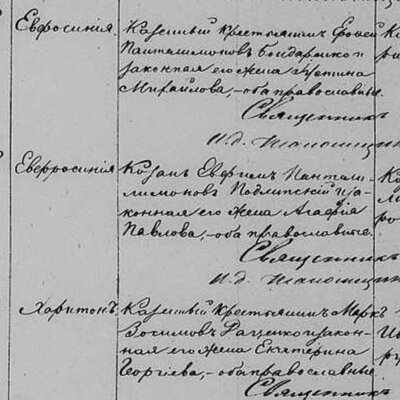 Евфросинія.
Казенный крестьянинъ Ерофей
Панталимоновъ Бондаренко и
законная его жена Устина
Михайлова, – оба православные.
Священникъ
И. д.
Евфросинія
Козакъ Евфимъ Пантали-
лимоновъ Подлипскій и за-
конная его жена Агафія
Павлова, – оба православные.
Священникъ
И. д.
Харитонъ
Казенный крестьянинъ Маркъ
Зосимовъ Раценко и закон-
ная его жена Екатерина
Георгіева, – оба православные.
Священникъ